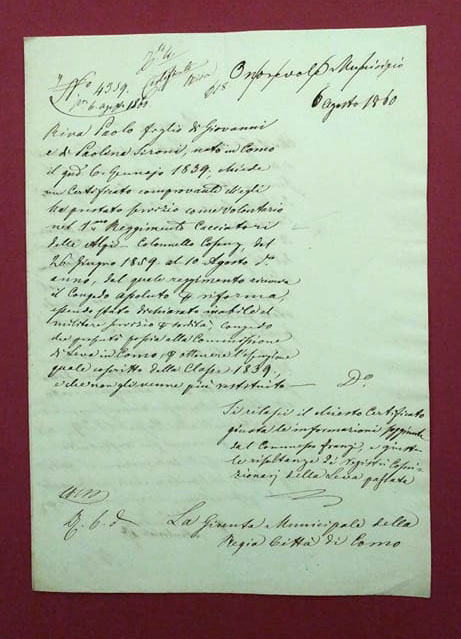 N° 4359.
Onorevole Municipio
6 Agosto 1860
Riva Paolo figlio di Giovanni
e di Paolina Sironi, nato in Como
il gno 6. Gennajo 1839, chiede
un Certificato comprovante ch'egli
ha prestato servizio come Volontario
nel 1mo Reggimento Cacciatori
delle Alpi Colonnello Cosenz, dal
26 Giugno 1859 al 10 Agosto do
anno, dal quale reggimento
il Congedo assoluto riforma,
essendo stato dichiarato inabile al
militare servizio congedo
che presentò alla Commissione
di Leva in Como, ottenere l'
quale coscritto della Classe 1839,
e che non gli venne più restituito
Do
Si rilasci il chiesto Certificato
giusta le informazioni
dal Commesso e giusta
le risultanze di registri
della Leva passata
La Giunta Municipale della
Regia Città di Como